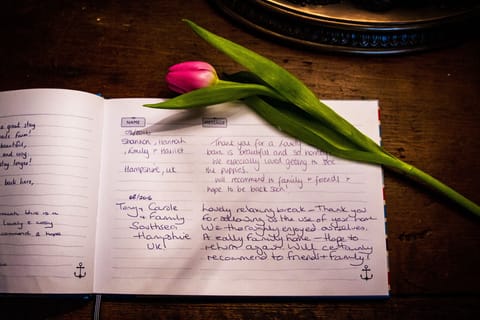 good stay
fun!
beautiful,
and very
stay longer!
back here,
this is a
& cosy
& hope
NAME
MESSAGE
Shannon, Hannah
, Emily + Harriet
Hampshire, UK
Thank you for a lovely
is beautiful and so
We especially loved getting to see
the puppies.
Will recommend to family + friends +
hope to be back soon!
08/2016
Tony, Carole
+ Family
Southsea
Hampshire
UK!
Lovely relaxing break - Thank you
for allowing us the use of your home.
We thoroughly enjoyed ourselves.
A really family home - Hope to
return again. Will certainly
recommend to friends + family!